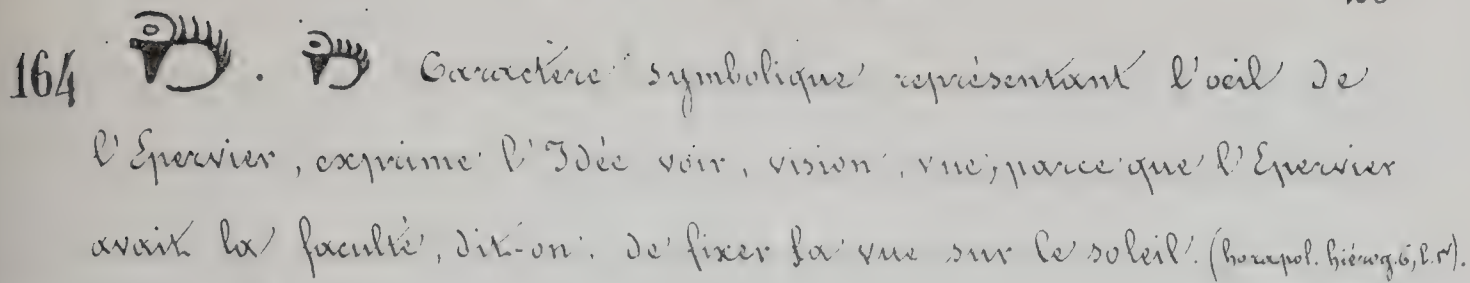 164 . Caractère symbolique représentant l'oeil de
l'Epervier, exprime l'Idée voir, vision, vue; parce que l'Epervier
avait la faculté, dit-on, de fixer sa vue sur le soleil. (horapol. hiérog. 6, l. 1er).